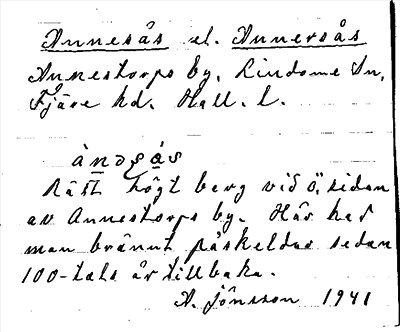 Annesås el. Annersås
Annestorps by, Lindome Sn,
Fjäre hd. Hall. l.
ànəsás
Rätt högt berg vid ö. sidan
av Annestorps by. Här har
man bränt påskeldar sedan
100-tals år tillbaka.
A. Jönsson 1941